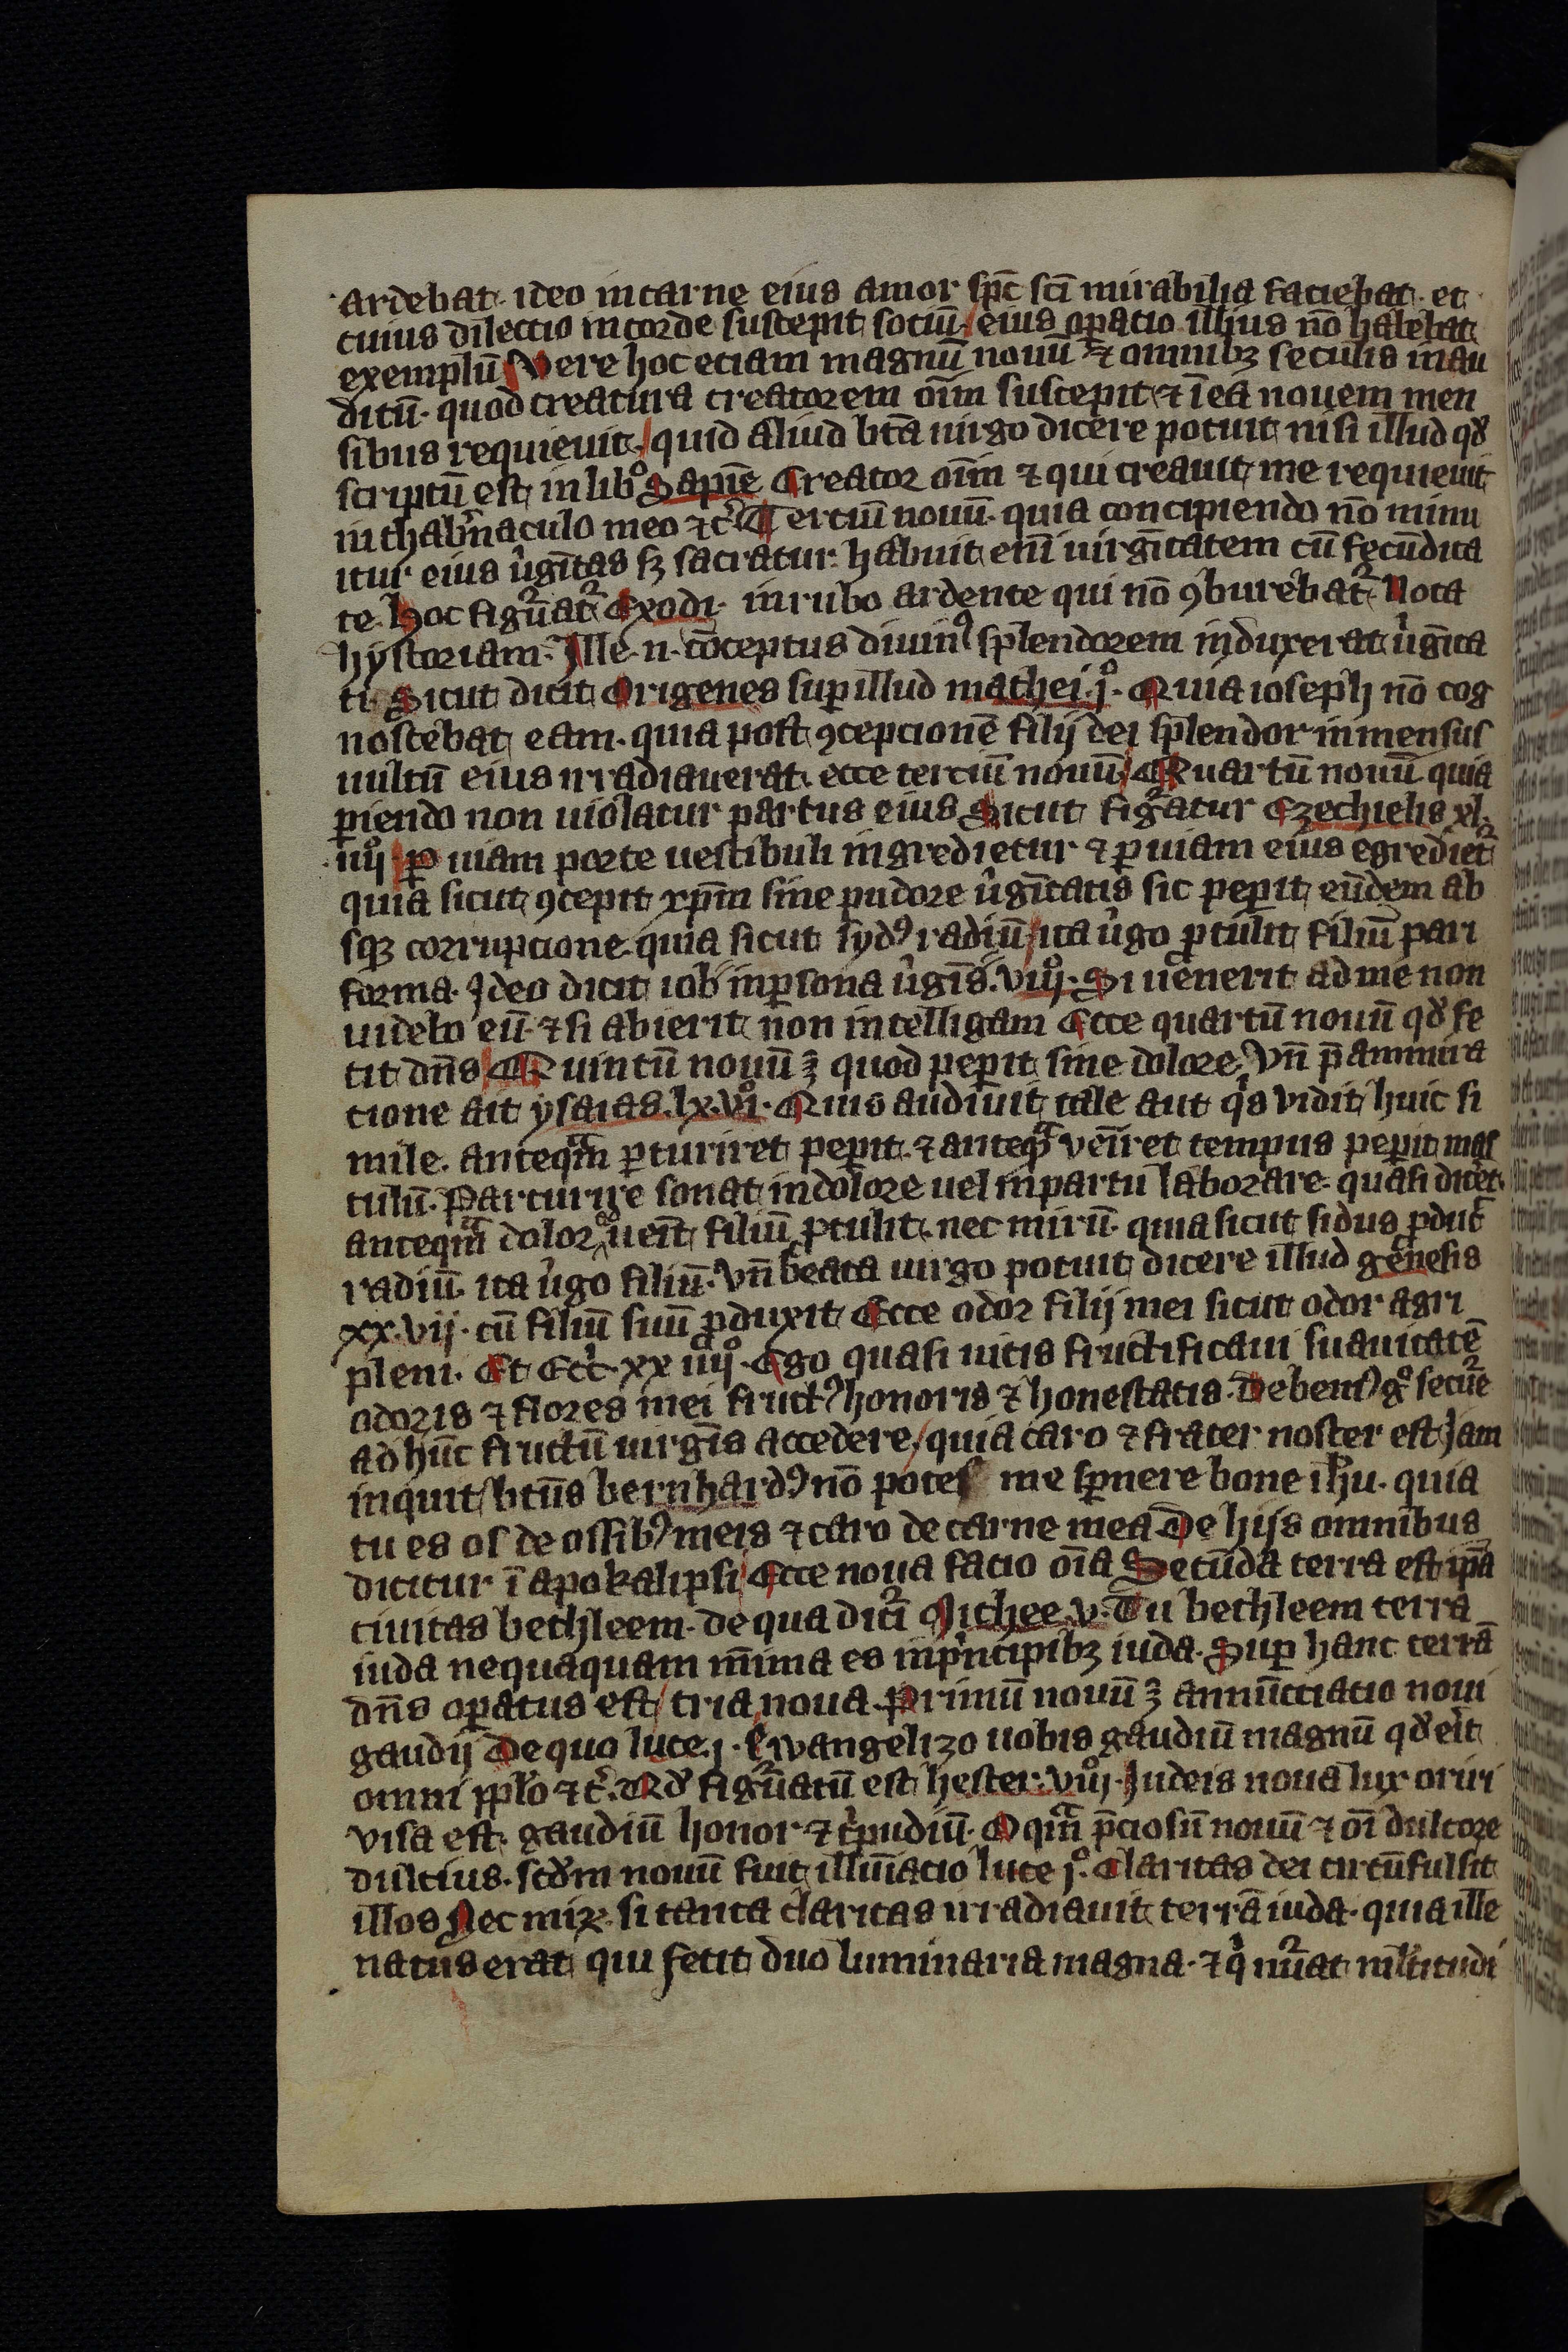 ardebat. ideo in carne eius amor sp̅c sc̅i mirabilia faciebat. et
cuius dilectio in corde suscepit sociu̅. eius op̲atio illius no̅ habebat
exemplu̅ Vere hoc eciam magnu̅ nouu̅ ⁊ omnibꝫ seculis inau
ditu̅. quod creatura creatorem oi̅m suscepit ⁊ i̅ ea nouem men
sibus requieuit. quid aliud bt̅a uirgo dicere potuit nisi illud qđ
scriptu̅ est in libº Sapie̅ Creator oi̅m ⁊ qui creauit me requieuit
in thab̓naculo meo ⁊c̓ Terciu̅ nouu̅. quia concipiendo no̅ minu
itur eius u̓gi̅tas sꝫ sacratur. habuit eni̅ uirgi̅tatem cu̅ fecu̅dita
te. Hoc figu̅at᷑ Exodi. in rubo ardente qui no̅ ꝯburebat᷑ Nota
hystoriam. Ille .n. co̅ceptus diuinꝰ sple̅ndorem induxerat u̓gi̅ta
ti. Sicut dicit Origenes suꝑ illud mathei .jº. Quia ioseph no̅ cog
noscebat eam. quia post ꝯcepcione̅ filij dei sple̅ndor inmensus
uultu̅ eius irradiauerat. ecce terciu̅ nouu̅ Quartu̅ nouu̅ quia
ꝑiendo non uiolatur partus eius Sicut figᷓatur Ezechielis xl.
iiijº ꝑ uiam porte uestibuli ingredietur ⁊ ꝑ uiam eius egrediet᷑
quia sicut ꝯcepit xp̅m sine pudore u̓gi̅tatis sic peꝑit eu̅dem ab
sqꝫ corrupcione. quia sicut sydꝰ radiu̅ ita u̓go ꝓtulit filiu̅ pari
forma. Ideo dicit iob in ꝑsona u̓gi̅s. viiijº. Si uenerit ad me non
uidebo eu̅. ⁊ si abierit non intelligam Ecce quartu̅ nouu̅ qđ fe
cit dn̅s Quintu̅ nouu̅ ꝫ quod peꝑit sine dolore. Vn̅ p̅ ammira
cione ait ysaias. lx. viº. Quis audiuit tale aut q̓s vidit huic si
mile. anteqᷓm ꝑturiret peꝑit. ⁊ anteqᷓ veni̅ret tempus peꝑit mas
culu̅. Parturire sonat in dolore uel in partu laborare. quasi dice̓t
anteqᷓm dolor ei ueni̅t filiu̅ ꝓtulit. nec miru̅. quia sicut sidus ꝓduc̅
radiu̅. ita u̓go filiu̅. Vn̅ beata uirgo potuit dicere illud gen̅esis
xx. vij. cu̅ filiu̅ suu̅ ꝓduxit Ecce odor filij mei sicut odor agri
pleni. Et Ecc̓. xx iiijº. Ego quasi uitis fructificaui suauitate̅
odoris ⁊ flores mei fructꝰ honoris ⁊ honestatis. Debemꝰ gº secu̅e
ad hu̅c fructu̅ uirgi̅s accedere. quia caro ⁊ frater noster est Jam
inquit bt̅us bernhardꝰ no̅ potes me sꝑnere bone ih̅u. quia
tu es os de ossibꝰ meis ⁊ caro de carne mea De hijs omnibus
dicitur i̅ apokalipsi Ecce noua facio oi̅a Secu̅da terra est ip̅a
ciuitas bethleem. de qua dici᷑ Michee. v. Tu bethleem terra
iuda nequaquam mi̅ima es in pri̓ncipibꝫ iuda. Suꝑ hanc terra̅
dn̅s oꝑatus est tria noua. Primu̅ nouu̅ ꝫ annu̅cciatio noui
gaudij De quo luce .j. Ewangelizo uobis gaudiu̅ magnu̅ qđ eri̅t
omni ppl̅o ⁊c̓. Qđ figu᷑atu̅ est hester. viijº. Judeis noua lux oriri
visa est. gaudiu̅ honor ⁊ tripudiu̅. O qᷓm p̅ciosu̅ nouu̅ ⁊ oi̅ dulcore
dulcius. scđm nouu̅ fuit illu̅iacio luce jº. Claritas dei circu̅fulsit
illos Nec miꝝ. si tanta claritas irradiauit terra̅ iuda. quia ille
natus erat qui fecit duo luminaria magna. ⁊ q̓ nu᷑at ml̅titudi